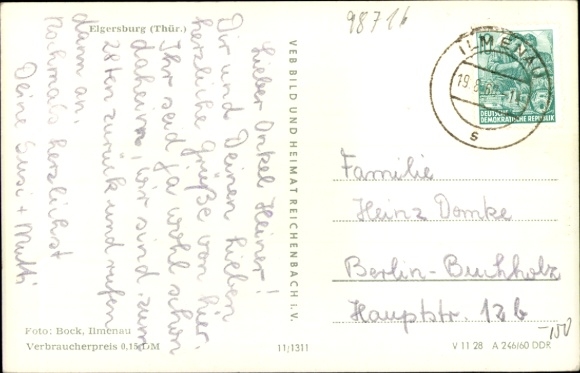 98716
Elgersburg (Thür.)
Lieber Onkel Heiner!
Dir und Deinen Lieben
herzliche Grüße von hier.
Ihr seid ja wohl schon
daheim, wir sind zum
28ten zurück und rufen
dann an.
Nochmals herzlichst
Deine Susi + Mutti
Foto: Bock, Ilmenau
Verbraucherpreis 0,15 DM
VEB BILD UND HEIMAT REICHENBACH i. V.
11/1311
ILMENAU
19.8.
s
5
DEUTSCHE
DEMOKRATISCHE REPUBLIK
Familie
Heinz Domke
Berlin-Buchholz
Hauptstr. 12b
-150
V 11 28 A 246/60 DDR